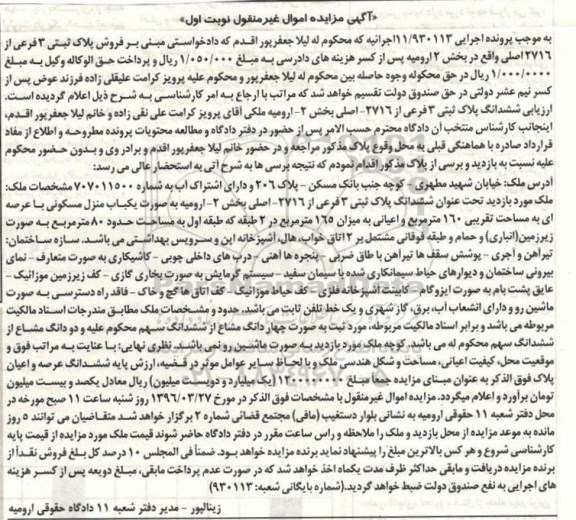 «آگهی مزایده اموال غیرمنقول نوبت اول»
به موجب پرونده اجرایی ۱۱/۹۳۰۱۱۳اجرائیه که محکوم له لیلا جعفرپور اقدم که دادخواستی مبنی بر فروش پلاک ثبتی ۳ فرعی از
۲۷۱۶ اصلی واقع در بخش ۲ ارومیه پس از کسر هزینه های دادرسی به مبلغ ۱/۰۵۰/۰۰۰ ریال و پرداخت حق الوکاله وکیل به مبلغ
۱/۰۰۰/۰۰۰ ریال در حق محکوله وجوه حاصله بین محکوم له لیلا جعفرپور و محکوم علیه پرویز کرامت علیقلی زاده فرزند عوض پس از
کسر نیم عشر دولتی در حق صندوق دولت تقسیم خواهد شد که مراتب با ارجاع به امر کارشناسی به شرح ذیل اعلام گردیده است.
ارزیابی ششدانگ پلاک ثبتی ۳ فرعی از ۲۷۱۶- اصلی بخش ۲- ارومیه ملکی آقای پرویز کرامت علی نقی زاده و خانم لیلا جعفرپور اقدم،
اینجانب کارشناس منتخب آن دادگاه محترم حسب الامر پس از حضور در دفتر دادگاه و مطالعه محتویات پرونده مطروحه و اطلاع از مفاد
قرارداد صادره با هماهنگی قبلی به محل وقوع پلاک مذکور مراجعه و در حضور خانم لیلا جعفرپور اقدم و برادر وی و بدون حضور محکوم
علیه نسبت به بازدید و برسی از پلاک مذکور اقدام نمودم که نتیجه برسی ها به شرح آتی به استحضار عالی می رسد:
آدرس ملک: خیابان شهید مطهری - کوچه جنب بانک مسکن - پلاک ۲۰۶ و دارای اشتراک آب به شماره ۷۰۷۰۱۱۵۰۰ مشخصات ملک:
ملک مورد بازدید تحت عنوان ششدانگ پلاک ثبتی ۳ فرعی از ۲۷۱۶- اصلی بخش ۲- ارومیه به صورت یکباب منزل مسکونی با عرصه
ای به مساحت تقریبی ۱۶۰ مترمربع و اعیانی به میزان ۱۶۵ مترمربع در ۲ طبقه که طبقه اول به مساحت حدود ۸۰ مترمربع به صورت
زیرزمین(انباری) و حمام و طبقه فوقانی مشتمل بر ۲ اتاق خواب، هال، آشپزخانه اپن و سرویس بهداشتی می باشد. سازه ساختمان:
تیرآهن و آجری - پوشش سقف ها تیرآهن با طاق ضربی - پنجره ها آهنی - درب های داخلی چوبی - کاشیکاری به صورت متعارف - نمای
بیرونی ساختمان و دیوارهای حیاط سیمانکاری شده با سیمان سفید - سیستم گرمایش به صورت بخاری گازی - کف زیرزمین موزائیک -
عایق پشت بام به صورت ایزوگام - کابینت آشپزخانه فلزی - کف حیاط موزائیک - کف اتاق ها گچ و خاک - فاقد راه دسترسی به صورت
ماشین رو و دارای انشعاب آب، برق، گاز شهری و یک خط تلفن ثابت می باشد. حدود و مشخصات ملک مطابق مندرجات اسناد مالکیت
مربوطه می باشد و برابر اسناد مالکیت مربوطه، مورد ثبت به صورت چهار دانگ مشاع از ششدانگ سهم محکوم علیه و دو دانگ مشاع از
ششدانگ سهم محکوم له می باشد. کوچه ملک مورد بازدید به صورت ماشین رو نمی باشد. نظری نهایی: با عنایت به مراتب فوق و
موقعیت محل، کیفیت اعیانی، مساحت و شکل هندسی ملک و با لحاظ سایر عوامل موثر در قضیه، ارزش پایه ششدانگ عرصه و اعیان
پلاک فوق الذکر به عنوان مبنای مزایده جمعاً مبلغ (یک میلیارد و دویست میلیون) ریال معادل یکصد و بیست میلیون
تومان برآورد و اعلام میگردد. مزایده اموال غیرمنقول با مشخصات فوق الذکر در مورخ ۱۳۹۶/۰۳/۲۷ روز شنبه ساعت ۱۱ صبح مورخه در
محل دفتر شعبه ۱۱ حقوقی ارومیه به نشانی بلوار دستغیب (مافی) مجتمع قضائی شماره ۲ برگزار خواهد شد متقاضیان می توانند ۵ روز
مانده به موعد مزایده از محل بازدید و ملک را ملاحظه و راس ساعت مقرر در دفتر دادگاه حاضر شوند قیمت ملک مورد مزایده از قیمت پایه
کارشناسی شروع و هر کس بالاترین مبلغ را پیشنهاد نماید برنده مزایده خواهد بود. ضمناً فی المجلس ۱۰ درصد کل بلغ فروش نقداً از
برنده مزایده دریافت و مابقی حداکثر ظرف مدت یکماه اخذ خواهد شد که در صورت عدم پرداخت مابقی، مبلغ دویعه پس از کسر هزینه
های اجرایی به نفع صندوق دولت ضبط خواهد گردید.(شماره بایگانی شعبه: ۹۳۰۱۱۳)
زینالپور - مدیر دفتر شعبه ۱۱ دادگاه حقوقی ارومیه